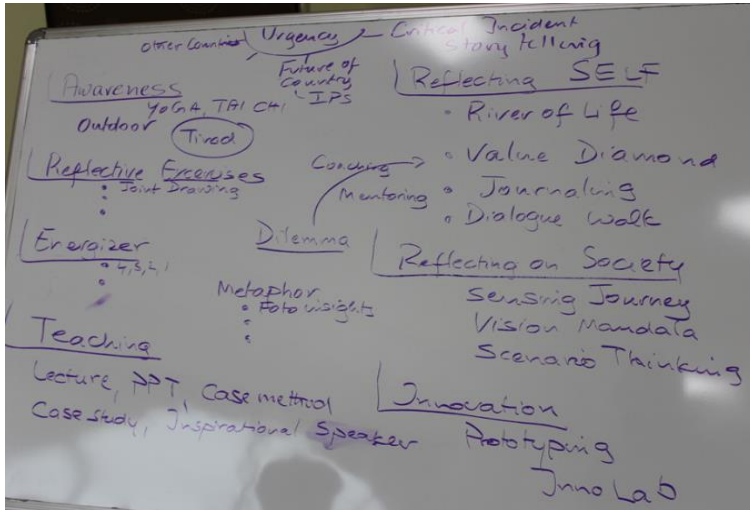 Other Countries Urgency - Critical Incident
Story telling
Future of
Country
- IPS
Awareness
YOGA, TAI CHI
Outdoor Tired
Reflective Exercises
• Joint Drawing
•
•
Energizer
•
•
Dilemma
Coaching
Mentoring
Metaphor
• Foto insights
•
•
Teaching
Lecture, PPT, Case method
Case study, Inspirational Speaker
Reflecting SELF
• River of Life
• Value Diamond
• Journaling
• Dialogue Walk
Reflecting on Society
Sensing Journey
Vision Mandala
Scenario Thinking
Innovation
Prototyping
Inno Lab